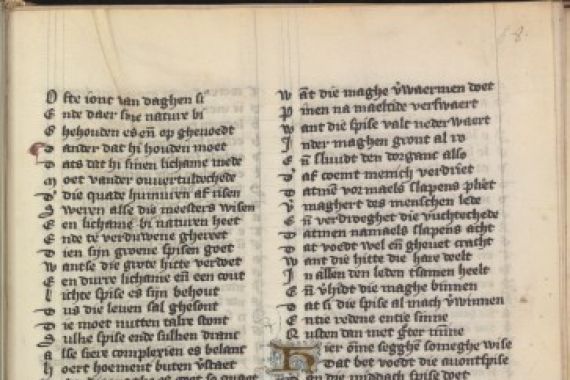 O fte ionc van daghen si
E nde daer sine nature bi
G hehouden es en̄ op gheuoedt
D ander dat hi houden moet
D ats dat hi sinen lichame mede
M oet vander
D' die quade humuren af risen
S weren alse die meesters wisen
E en lichame bi naturen heet
E nde te verduwene ghereet
D ien sijn groene spisen goet
W antse die grote hitte verdwet
E en durre lichame en̄ een cout
L ichte spise es sijn behout
D us die leuen sal ghesont
D ie moet nutten talre stont
S ulke spise ende sulken dranc
A lse siere complexien es belanc
H oert hoement buten v̄staet
58.
W āt die maghe v̄waermen doet
P men na maeltide verswaert
W ant die spise valt nederwaert
I nder maghen gront al
E n̄ sluudt den
D' af coemt menich verdriet
D atmē vormaels slapens pliet
V' maghert des menschen lede
E n̄ verdroeghet die vuchtechede
D atmen namaels slapens acht
D at voedt wel en̄ gheuet cracht
W ant die hitte die hare deelt
I n allen den leden tsamen heelt
E n̄ v̄hidt die maghe binnen
D at si die spise al mach v̄winnen
E ntie redene entie sinne
R usten dan met
H ier ōme segghē someghe wise
D at bet voedt die auontspise
D an die middach spise doet